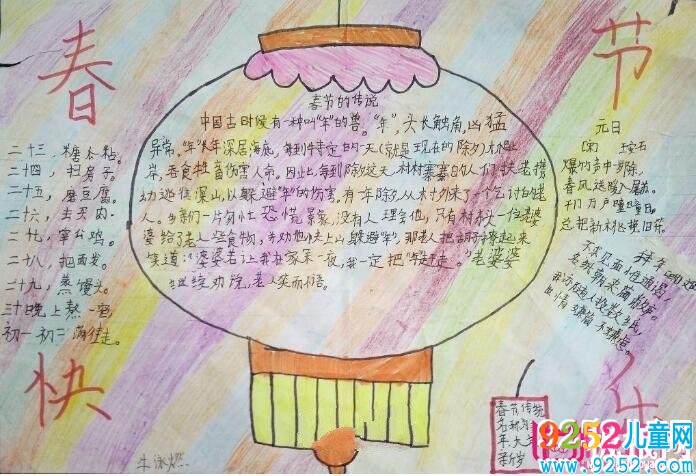 春
节
快
春节的传说
中国古时候有一种叫"年"的兽。"年",头长触角,凶猛
异常。"年"长年深居海底,每到特定的一天(就是现在的除夕)才爬上
岸,吞食牲畜伤害人命。因此,每到除夕这天,村村寨寨的人们扶老携
幼逃往深山,以躲避"年"的伤害。有一年除夕,从村外来了个乞讨的老
人。乡亲们一片匆忙恐慌景象,没有人理会他,只有村头一位老婆
婆给了老人些食物,并劝他快上山躲避"年",那老人把胡子撩起来
笑道:"婆婆若让我在家呆一夜,我一定把"年"赶走。"老婆婆
继续劝说,老人笑而不语。
二十三,糖瓜粘。
二十四,扫房子。
二十五,磨豆腐。
二十六,去买肉。
二十七,宰公鸡。
二十八,把面发。
二十九,蒸馒头。
三十晚上熬一宿。
初一初二满街走。
元日
爆竹声中一岁除,
春风送暖入屠苏。
千门万户瞳瞳日,
总把新桃换旧符。
拜年
不求见面惟通谒,
名纸朝来满敝庐。
我亦随人投数纸,
世情嫌简不嫌虚。
春节传统
名称
年大
新岁
9252儿童网
www.9252.com